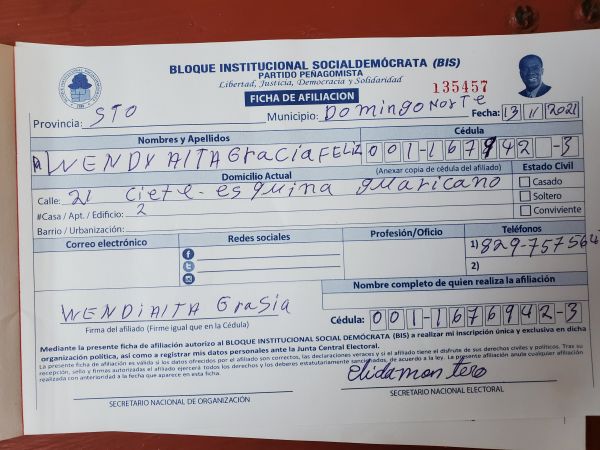 BLOQUE INSTITUCIONAL SOCIALDEMÓCRATA (BIS)
PARTIDO PEÑAGOMISTA
Libertad, Justicia, Democracia y Solidaridad
FICHA DE AFILIACION
135457
Provincia: STO Municipio: Domingo Norte Fecha: 13 11 2021
Nombres y Apellidos Cédula
WENDY AltA Gracia FELiZ 001-167 942-3
Domicilio Actual (Anexar copia de cédula del afiliado) Estado Civil
Calle: 21 Ciete esquina guaricano Casado
#Casa / Apt. / Edificio: 2 Soltero
Barrio / Urbanización: Conviviente
Correo electrónico Redes sociales Profesión/Oficio Teléfonos
1) 829-757564
2)
Nombre completo de quien realiza la afiliación
WENDiAltA Grasia
Firma del afiliado (Firme igual que en la Cédula) Cédula: 001-1676942-3
Mediante la presente ficha de afiliación autorizo al BLOQUE INSTITUCIONAL SOCIAL DEMÓCRATA (BIS) a realizar mi inscripción única y exclusiva en dicha
organización política, así como a registrar mis datos personales ante la Junta Central Electoral.
La presente ficha de afiliación es valida si los datos ofrecidos por el afiliado son correctos, las declaraciones veraces y si el afiliado tiene el disfrute de sus derechos civiles y políticos. Tras su
recepción, sello y firmas autorizadas el afiliado ejercerá todos los derechos y los deberes estatutariamente sancionados, de acuerdo a la ley. La presente afiliación anula cualquier afiliación
realizada con anterioridad a la fecha que aparece en esta ficha.
elidamontero
SECRETARIO NACIONAL DE ORGANIZACIÓN SECRETARIO NACIONAL ELECTORAL